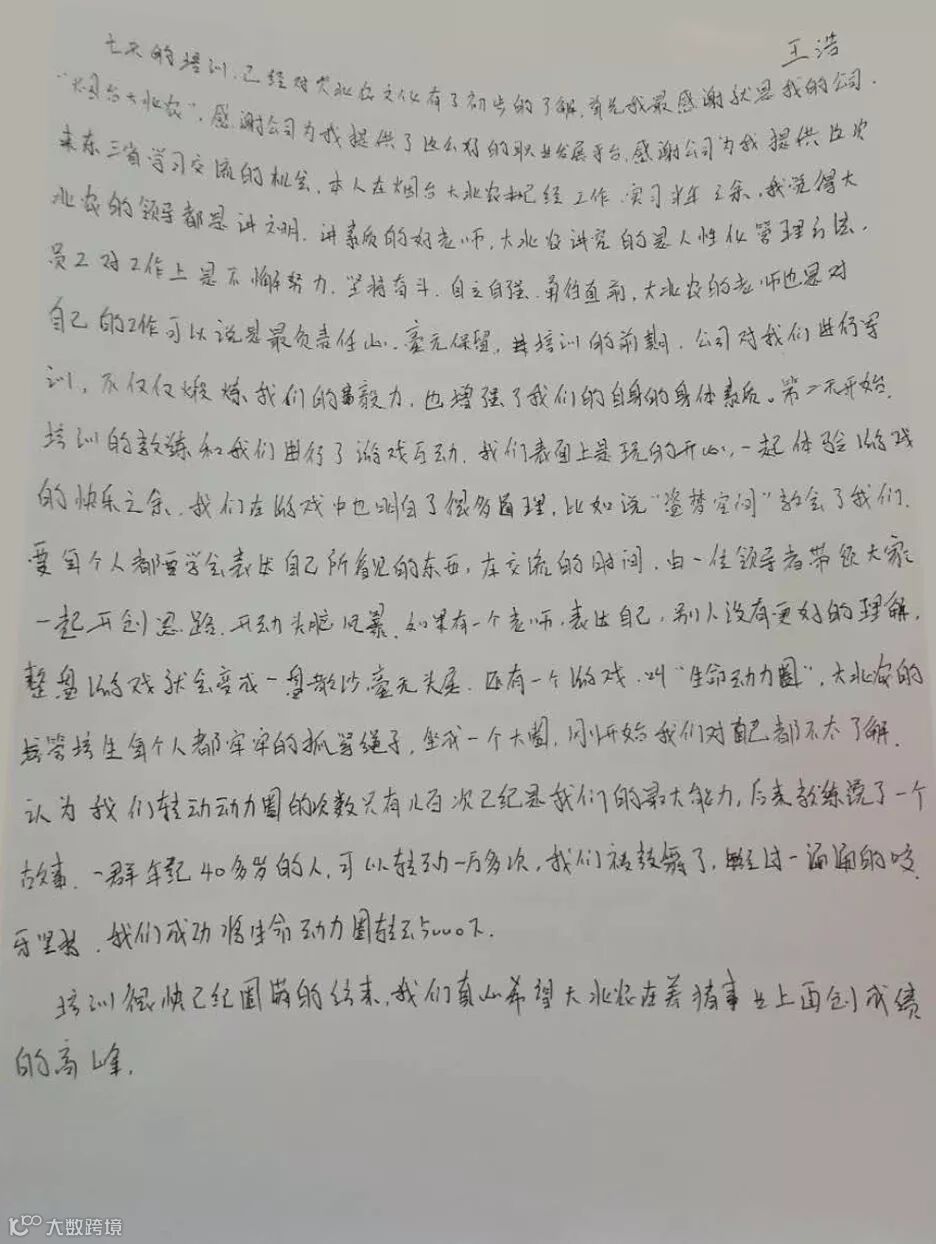 王浩
七天的培训，已经对大北农文化有了初步的了解，首先我最感谢就是我的公司。
“烟台大北农”，感谢公司为我提供了这么好的职业发展平台，感谢公司为我提供这次
来东三省学习交流的机会，本人在烟台大北农已经工作、实习半年之余，我觉得大
北农的领导都是讲文明、讲素质的好老师，大北农讲究的是人性化管理方法，
员工对工作上是不懈努力、坚持奋斗、自立自强、勇往直前，大北农的老师也是对
自己的工作可以说是最负责任心、毫无保留，培训的前期，公司对我们进行军
训，不仅仅煅炼我们的毅力，也增强了我们的自身的身体素质。第二天开始，
培训的教练和我们进行了游戏互动，我们表面上是玩的开心，一起体验游戏
的快乐之余，我们在游戏中也明白了很多道理，比如说“盗梦空间”教会了我们，
要每个人都要学会表达自己所看见的东西，在交流的时间，由一位领导者带领大家
一起开创思路，开动头脑风暴，如果有一个老师，表达自己，别人没有更好的理解，
整盘游戏就会变成一盘散沙，毫无头尾，还有一个游戏，叫“生命动力圈”，大北农的
管培生每个人都牢牢的抓紧绳子，坐成一个大圈，刚开始我们对自己都不太了解，
认为我们转动动力圈的次数只有几百次已经是我们的最大能力，后来教练说了一个
故事，一群年纪40多岁的人，可以转动一万多次，我们被鼓舞了，经过一遍遍的咬
牙坚持，我们成功将生命动力圈转了5000下。
培训很快已经圆满的结束，我们真心希望大北农在养猪事业上再创成绩
的高峰。
大数跨境